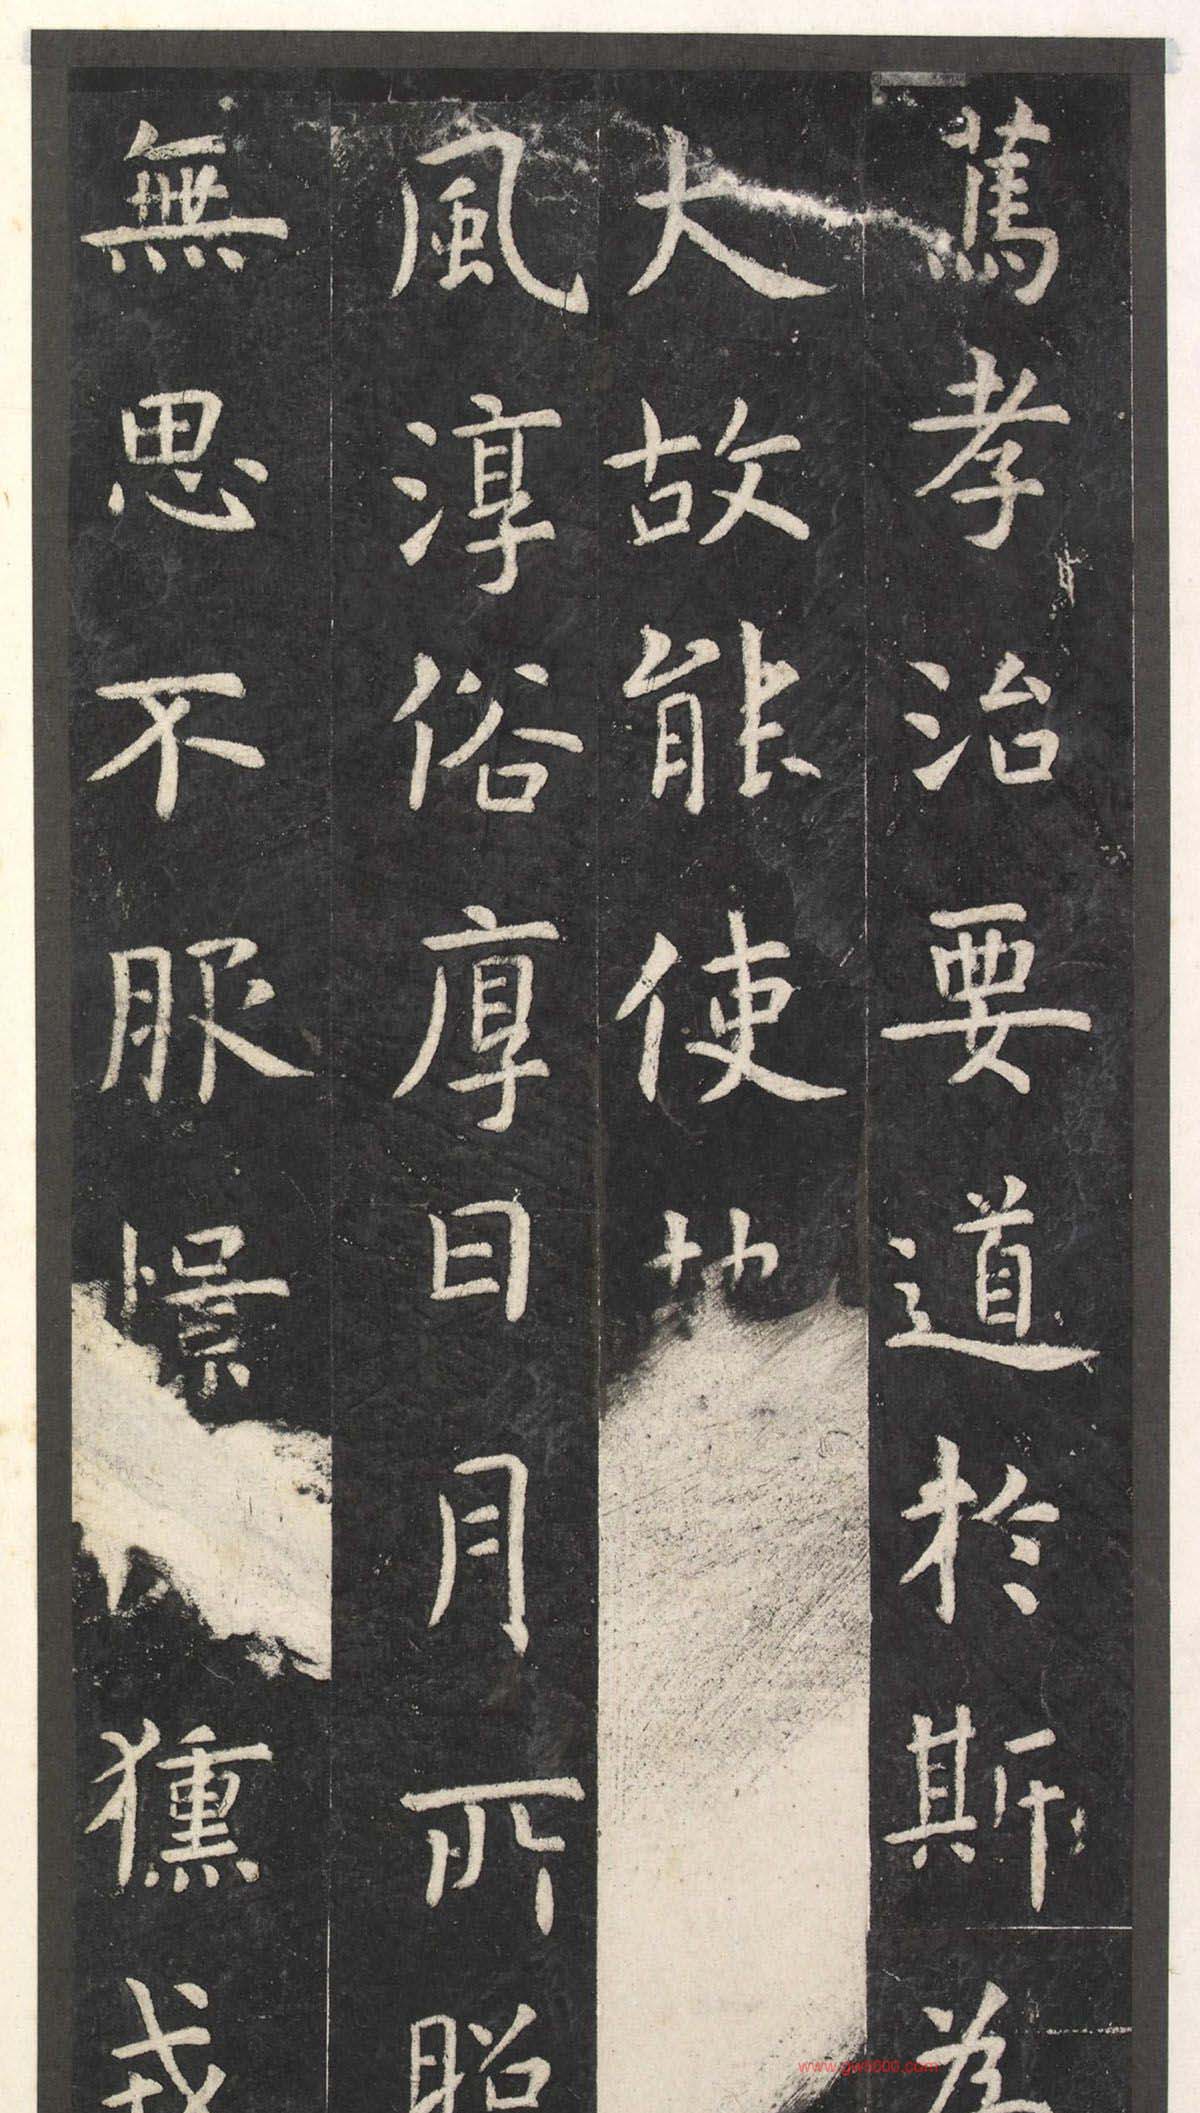 篤孝治要道於斯為
大故能使
風淳俗厚日月所昭
無思不服憬獯戎
www.gw5000.com